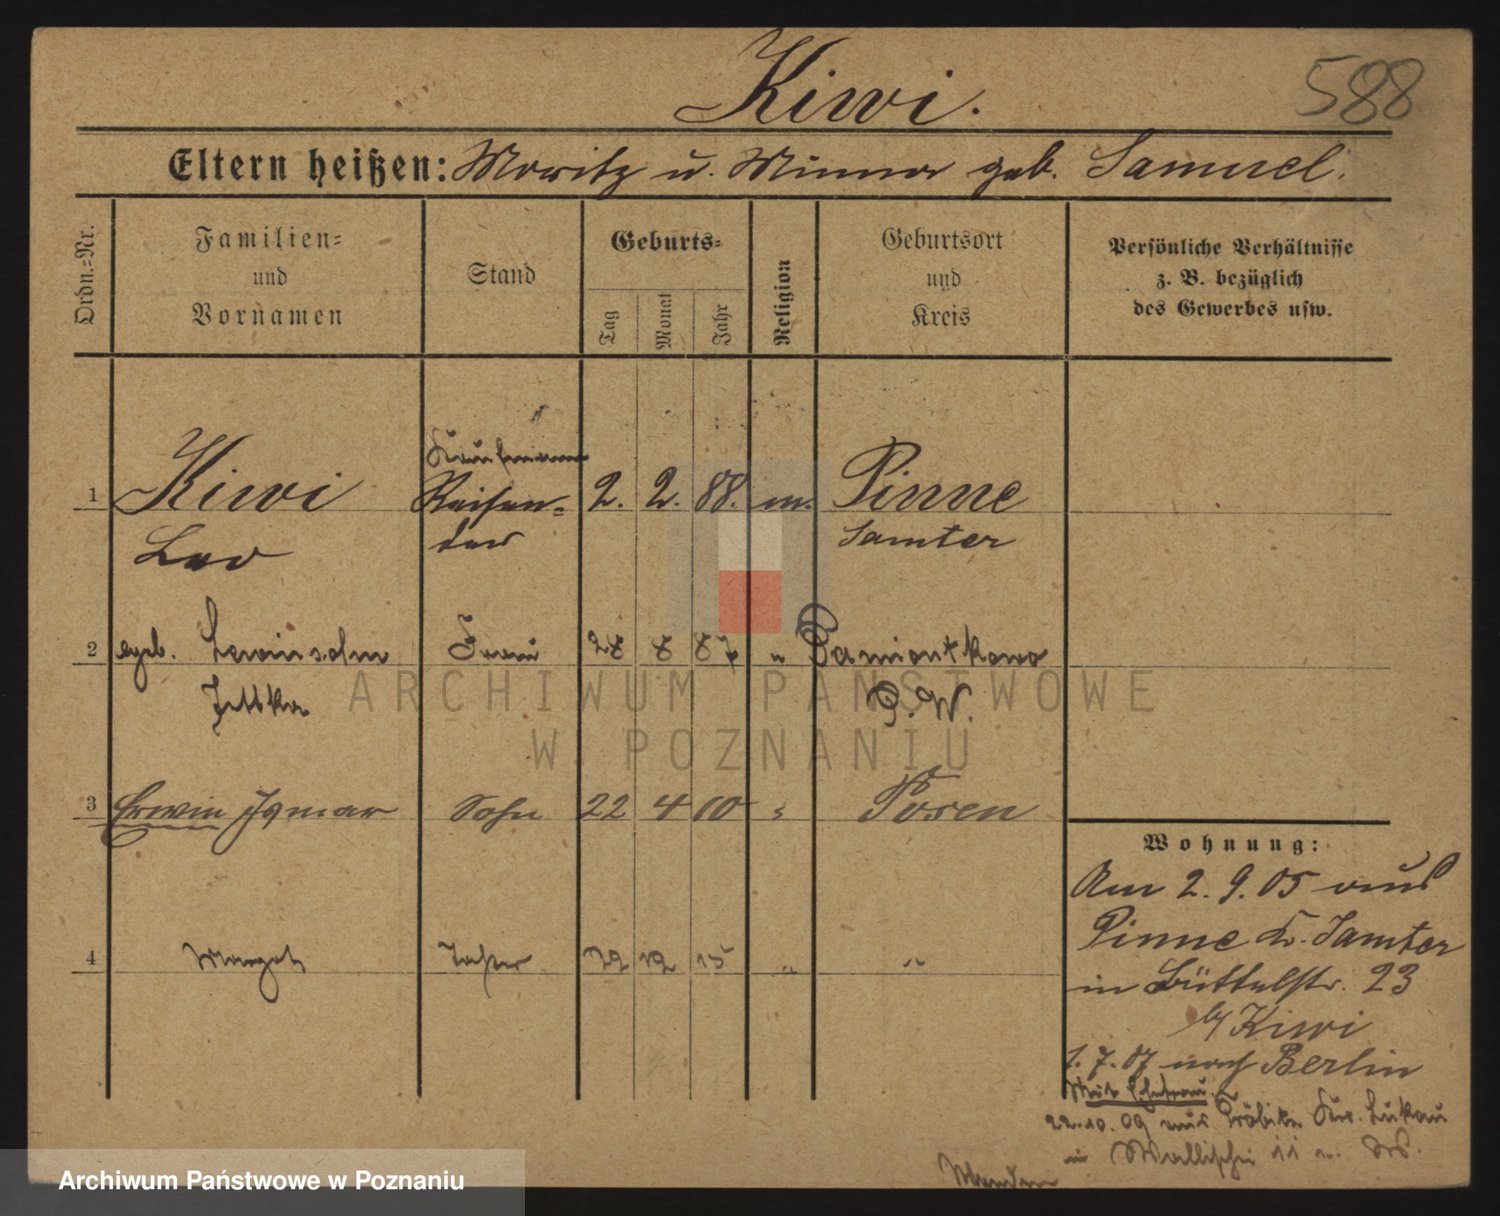 Kiwi.
588
Eltern heißen: Moritz u. Minna geb. Samuel.
Ordn.-Nr.
Familien-
und
Vornamen
Stand
Geburts-
Tag
Monat
Jahr
Religion
Geburtsort
und
Kreis
Persönliche Verhältnisse
z. B. bezüglich
des Gewerbes usw.
Kaufmann
1 Kiwi Reisen- 2. 2. 88. m. Pinne
Leo der Samter
2 geb. Lewinsohn Frau 28 8 87 " Pamiontkowo
Jettka P. W.
3 Erwin Ismar Sohn 22 4 10 " Posen
4 Margot Tochter 12 15 " "
Wohnung:
Am 2. 9. 05 aus
Pinne Kr. Samter
in Büttelstr. 23
b/ Kiwi
1. 7. 07 nach Berlin
Mit Ehefrau
22.10.09 aus Kr. Lukau
in Wallischei 11
ARCHIWUM PAŃSTWOWE
W POZNANIU
Archiwum Państwowe w Poznaniu